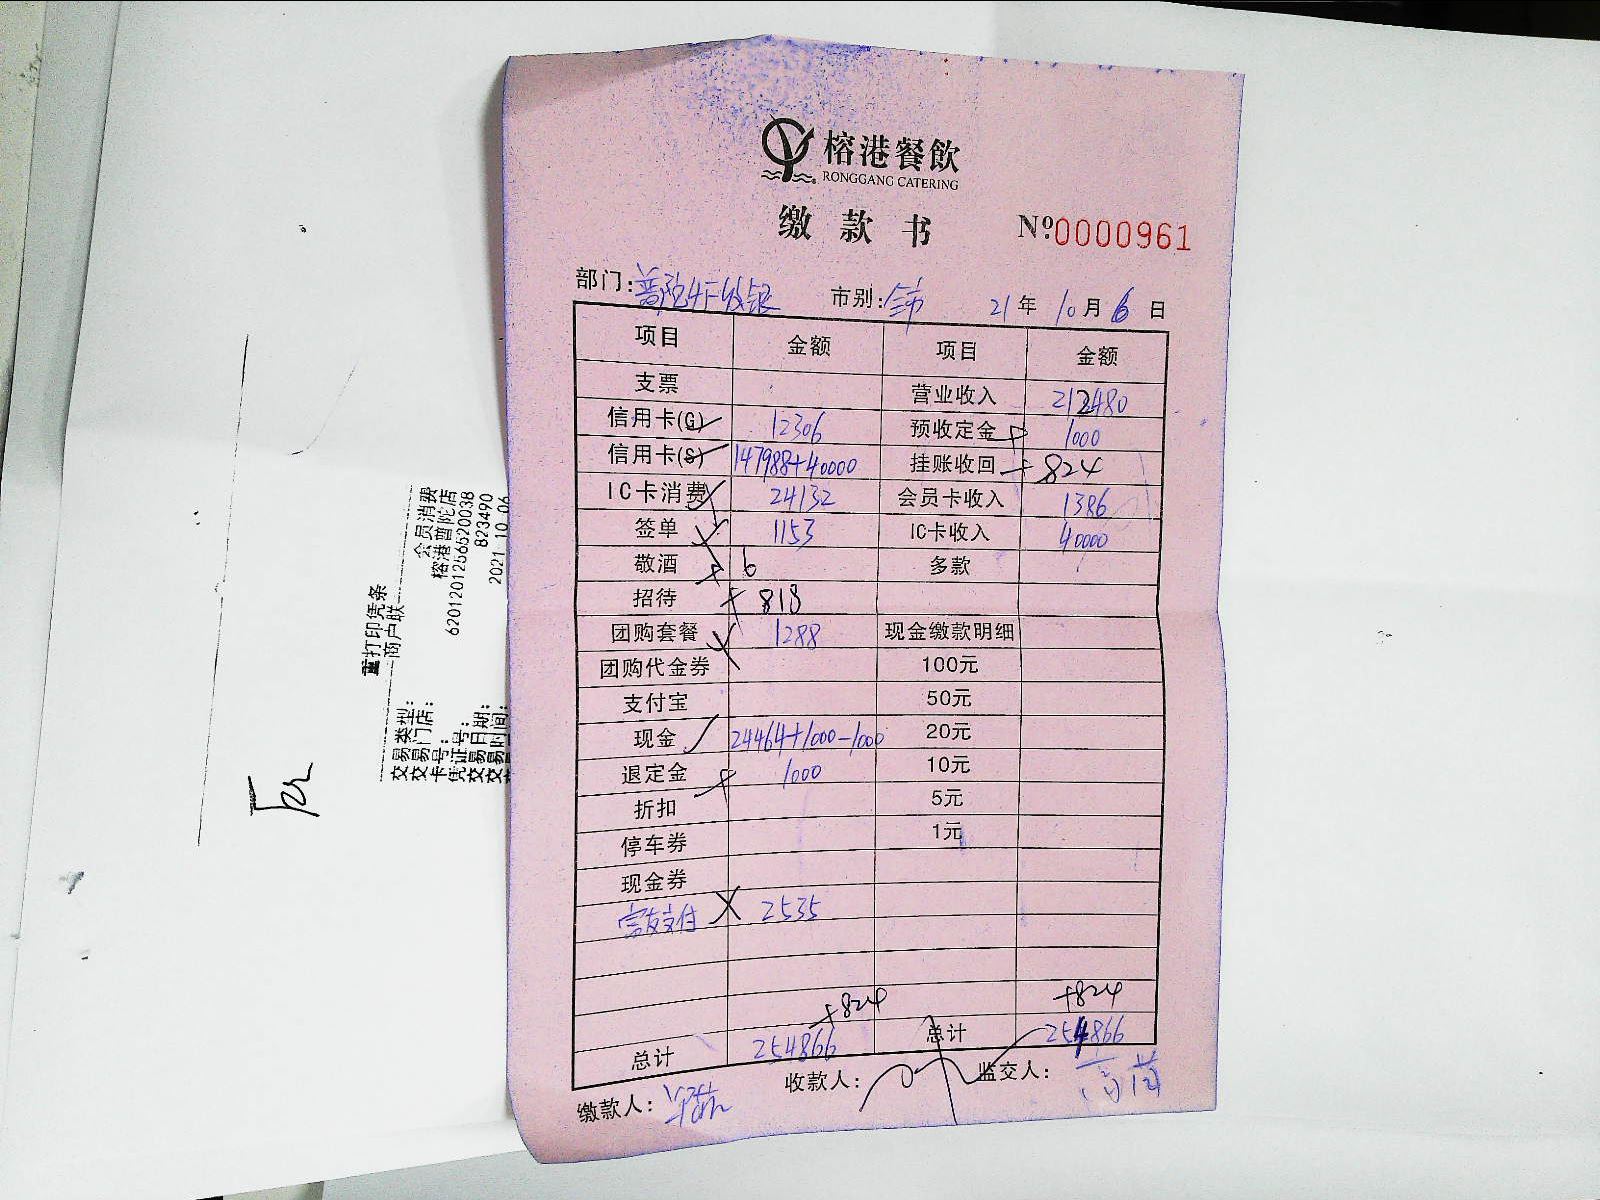 榕港餐飲
RONGGANG CATERING
缴款书 №0000961
部门：普陀4F收银 市别：全市 21年10月6日
项目 金额 项目 金额
支票 营业收入 212480
信用卡(G) 12306 预收定金 1000
信用卡(S) 147988+40000 挂账收回 824
IC卡消费 24132 会员卡收入 1386
签单 1153 IC卡收入 40000
敬酒 6 多款
招待 818
团购套餐 1288 现金缴款明细
团购代金券 100元
支付宝 50元
现金 24464+1000-1000 20元
退定金 1000 10元
折扣 5元
停车券 1元
现金券
支付 2535
+824 +824
总计 254866 总计 254866
缴款人： 收款人： 监交人：
重打印凭条
商户联
交易类型： 会员消费
交易门店： 榕港普陀店
卡号： 6201201256520038
凭证号： 823490
交易日期： 2021 10 06
交易时间：